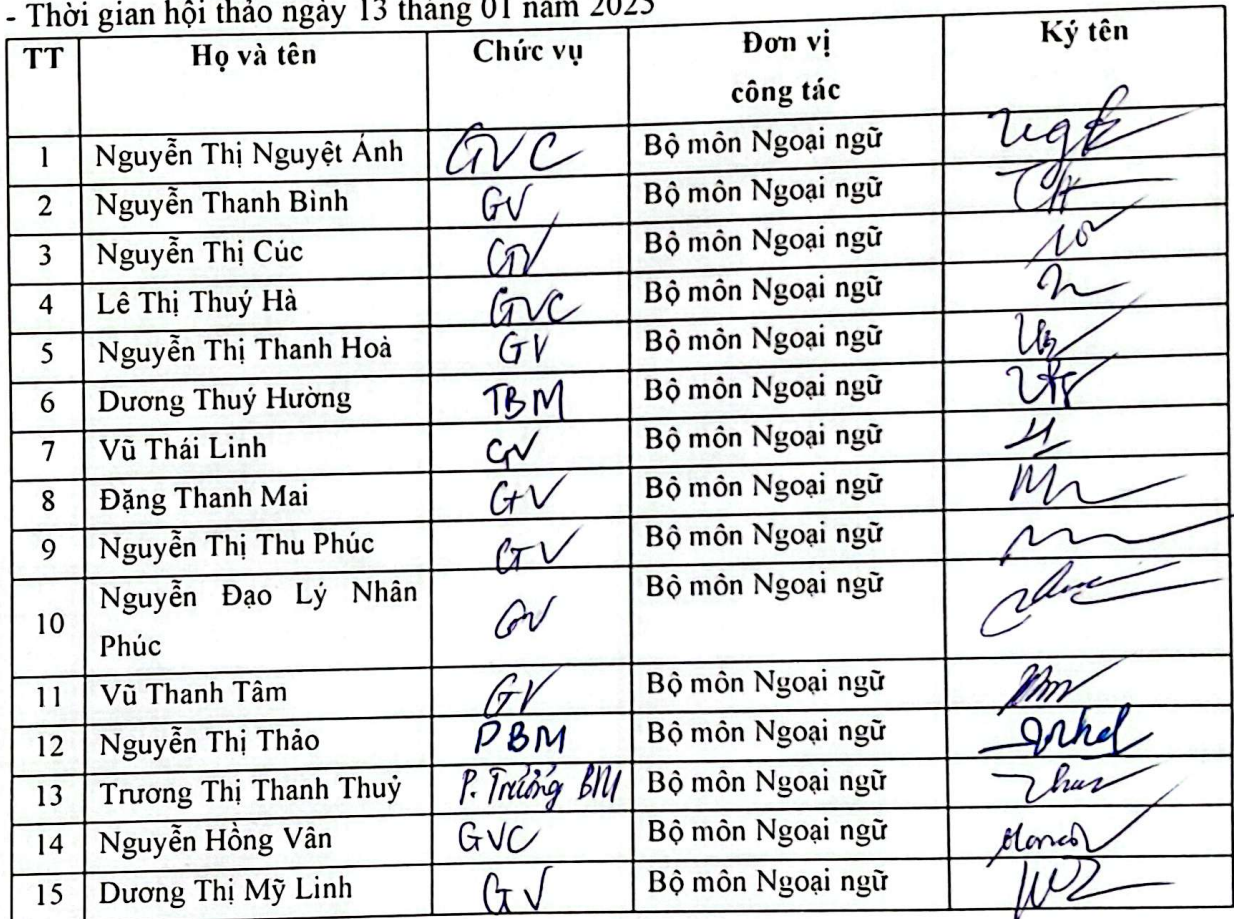 - Thời gian hội thảo ngày 13 tháng 01 năm 2025
TT Họ và tên Chức vụ Đơn vị công tác Ký tên
1 Nguyễn Thị Nguyệt Ánh GVC Bộ môn Ngoại ngữ
2 Nguyễn Thanh Bình GV Bộ môn Ngoại ngữ
3 Nguyễn Thị Cúc GV Bộ môn Ngoại ngữ
4 Lê Thị Thuý Hà GVC Bộ môn Ngoại ngữ
5 Nguyễn Thị Thanh Hoà GV Bộ môn Ngoại ngữ
6 Dương Thuý Hường TBM Bộ môn Ngoại ngữ
7 Vũ Thái Linh GV Bộ môn Ngoại ngữ
8 Đặng Thanh Mai GV Bộ môn Ngoại ngữ
9 Nguyễn Thị Thu Phúc GV Bộ môn Ngoại ngữ
10 Nguyễn Đạo Lý Nhân Phúc GV Bộ môn Ngoại ngữ
11 Vũ Thanh Tâm GV Bộ môn Ngoại ngữ
12 Nguyễn Thị Thảo PBM Bộ môn Ngoại ngữ
13 Trương Thị Thanh Thuỷ P. Trưởng BM Bộ môn Ngoại ngữ
14 Nguyễn Hồng Vân GVC Bộ môn Ngoại ngữ
15 Dương Thị Mỹ Linh GV Bộ môn Ngoại ngữ